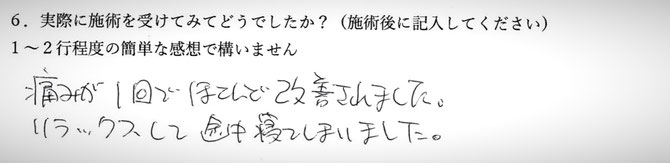 ６．実際に施術を受けてみてどうでしたか？（施術後に記入してください）
１～２行程度の簡単な感想で構いません
痛みが1回でほとんど改善されました。
リラックスして途中寝てしまいました。